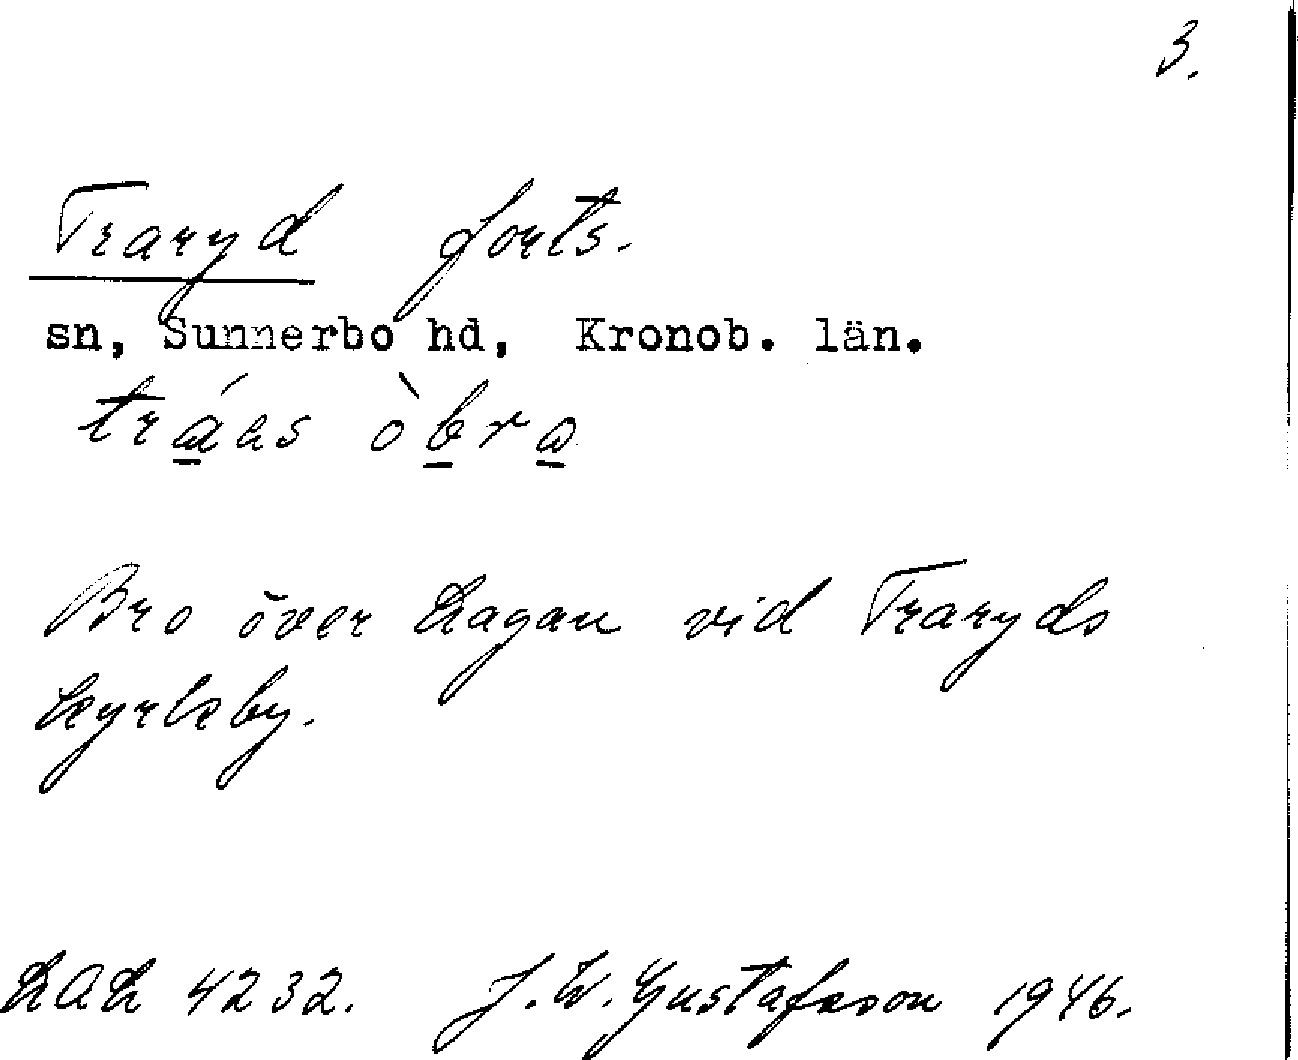 3.
Traryd forts.
sn, Sunnerbo hd, Kronob. län.
tráas òbra
Bro över Lagan vid Traryds
kyrkby.
LAL 4232. J. W. Gustafsson 1946.